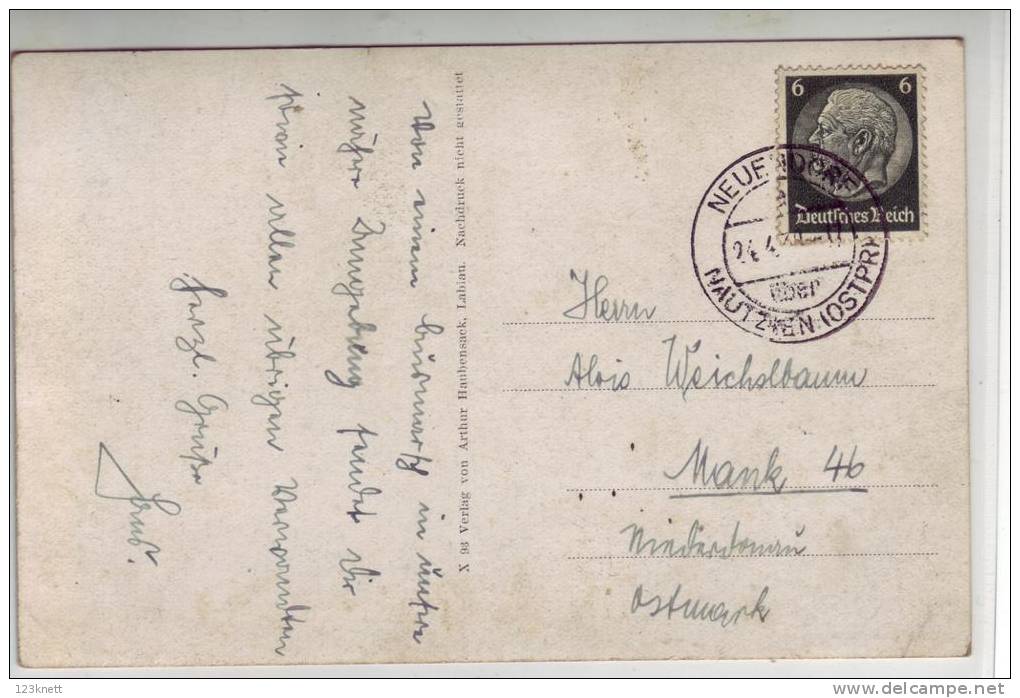 Von einem Ausmarsch in unsere
nähere Umgebung sendet Dir
sowie allen übrigen Verwandten
herzl. Grüße
X 93 Verlag von Arthur Haubensack, Labiau. Nachdruck nicht gestattet
6 6
Deutsches Reich
NEUENDORF
24.4.
über
NAUTZKEN (OSTPR)
Herrn
Alois Weichslbaum
Mank 46
Niederdonau
Ostmark
123knett
www.delcampe.net